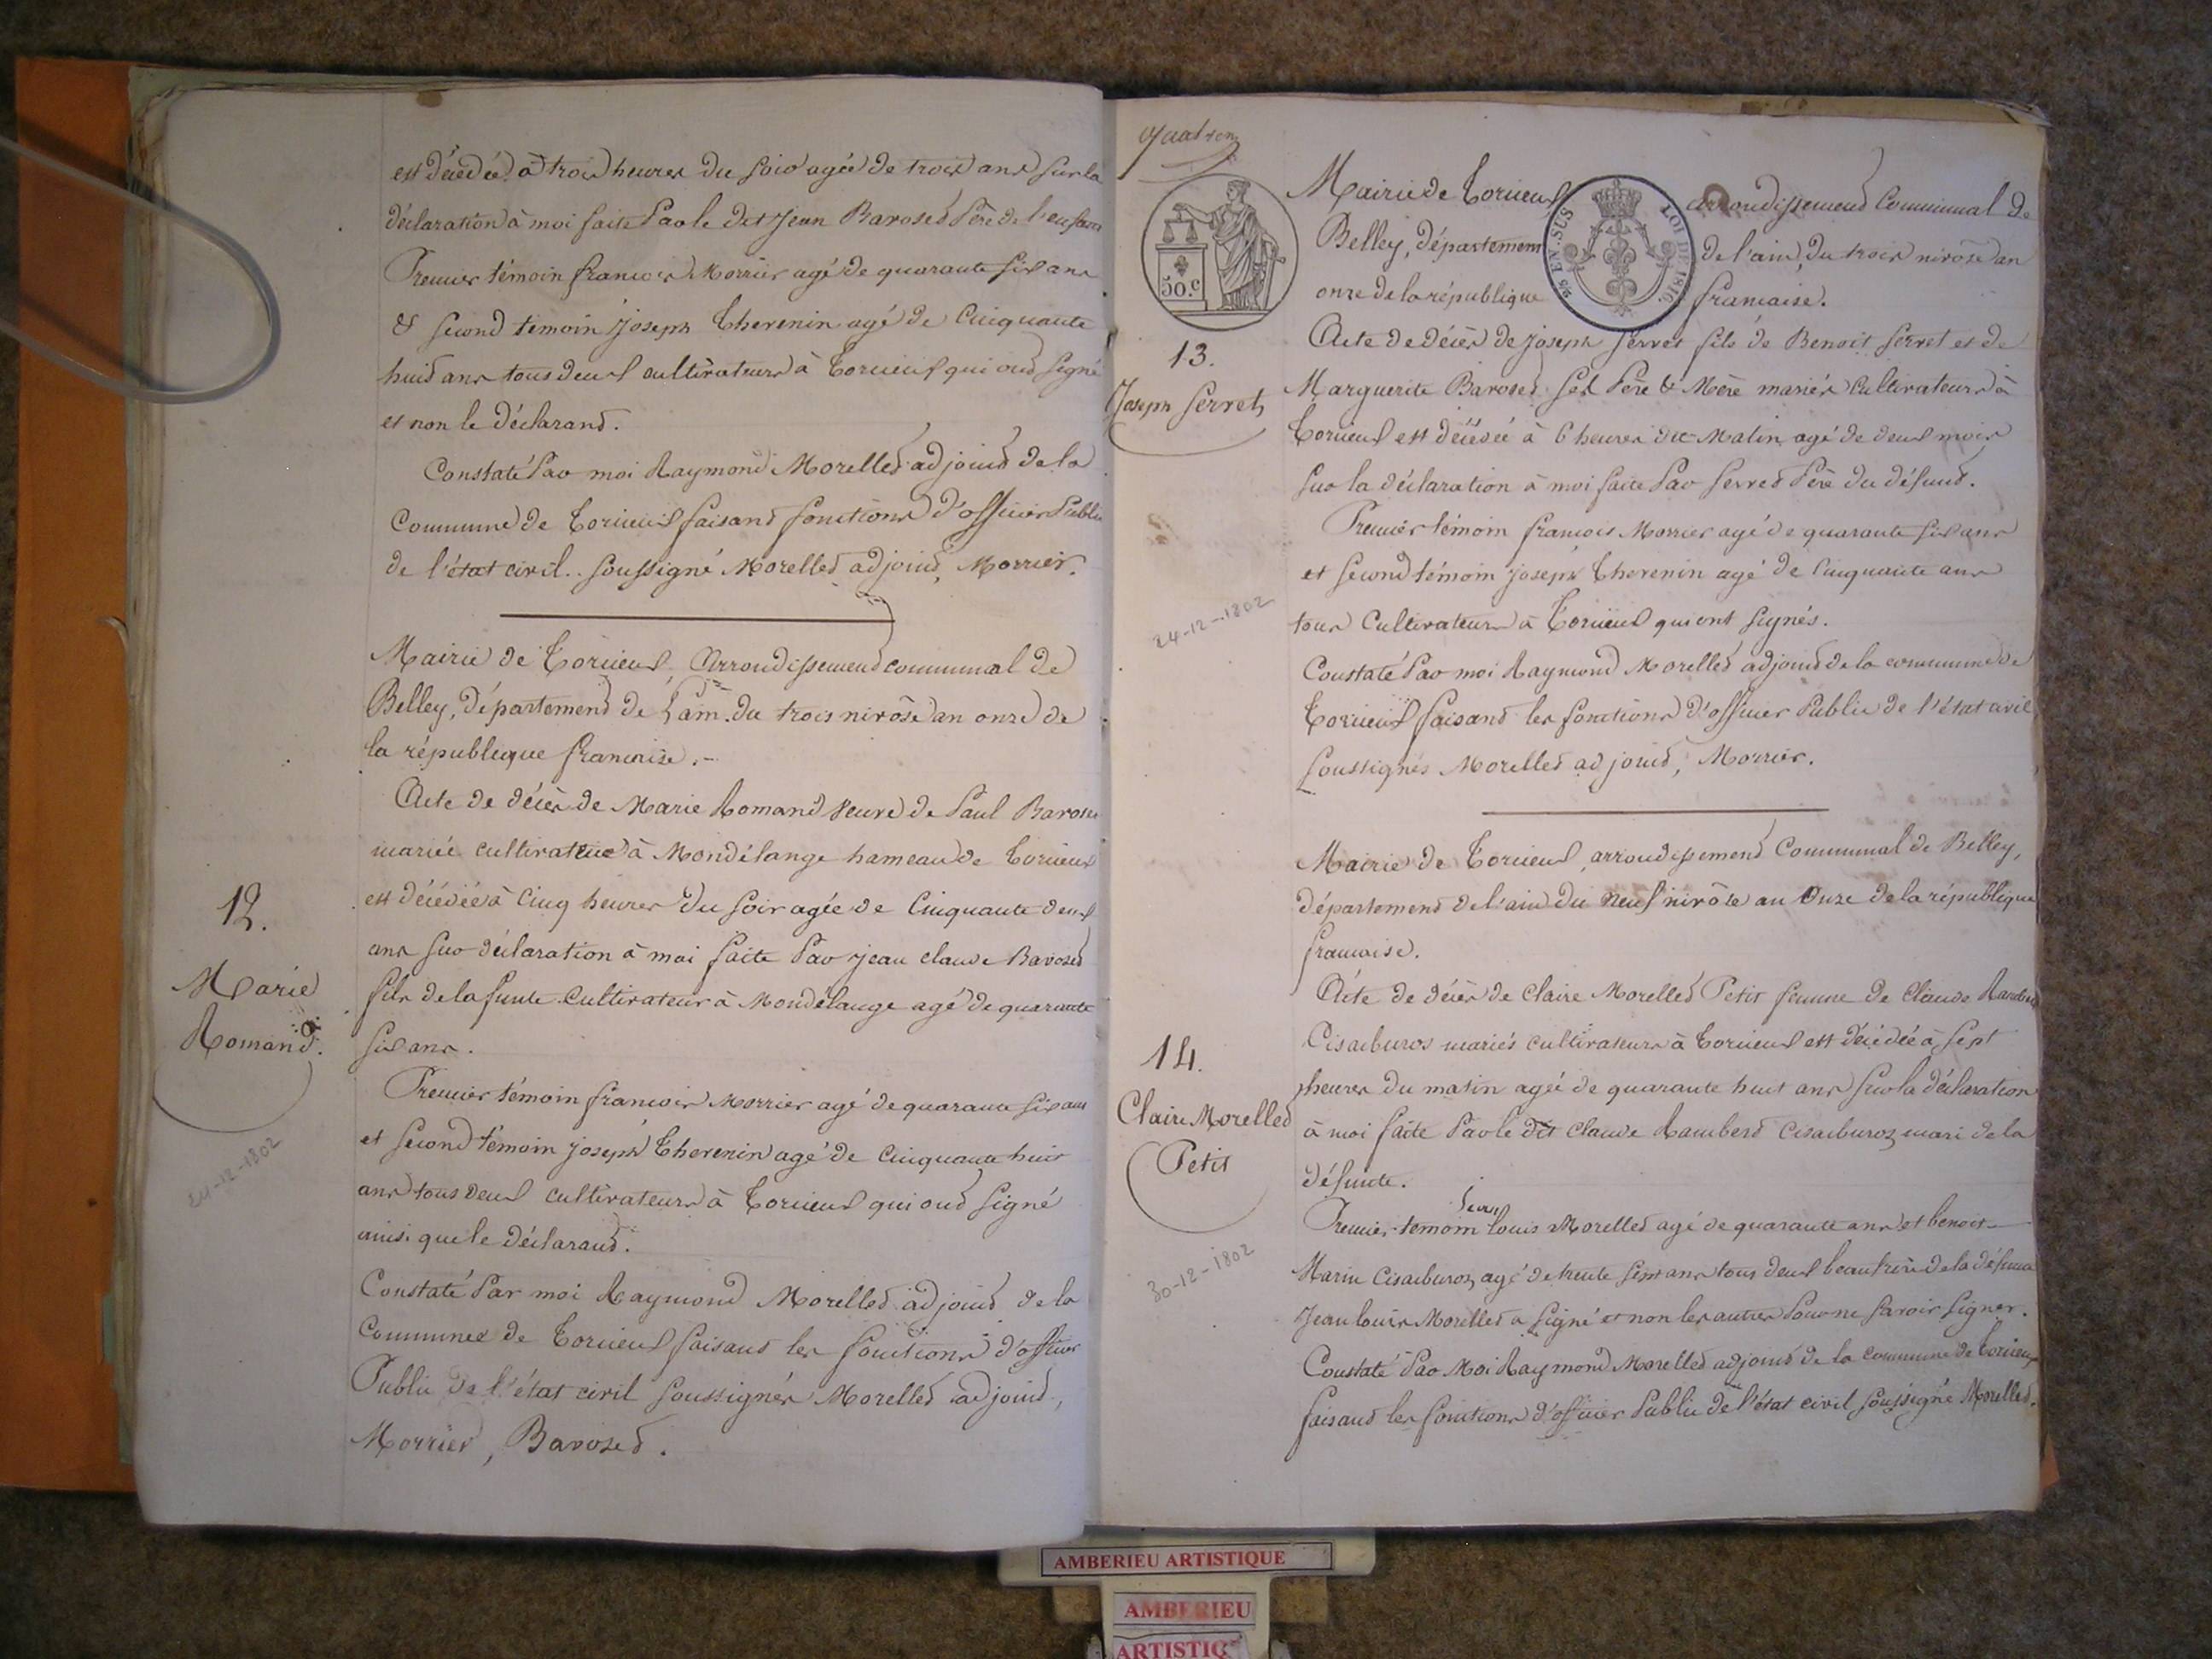 est décédée à trois heures du soir agée de trois ans sur la
déclaration à moi faite Par le dit Jean Baroset Père de l'enfant
Premier témoin francois Morrier agé de quarante six ans
& second temoin Joseph Thevenin agé de Cinquante
huit ans tous deux cultivateurs à Torcieux qui ont signé
et non le déclarant.
Constaté Par moi Raymond Morellet adjoint de la
Commune de Torcieux faisant fonctions d'officier Public
de l'état civil.. soussigné Morellet adjoint, Morrier.
Mairie de Torcieux, Arrondissement communal de
Belley, département de l'ain. du trois nivôse an onze de
la république francaise.-
Acte de décès de Marie Romand Veuve de Paul Baroset
mariée cultivatrice à Mondélange hameau de Torcieux
12.
est décédée à Cinq heures du soir agée de Cinquante deux
ans sur déclaration à moi faite Par Jean Claude Baroset
Marie
fils de la funte Cultivateur à Mondélange agé de quarante
Romand.
six ans.
Premier témoin francois Morrier agé de quarante six ans
et second témoin Joseph Thevenin agé de Cinquante huit
24-12-1802
ans tous deux cultivateurs à Torcieux qui ont signé
ainsi que le déclarant.
Constaté Par moi Raymond Morellet adjoint de la
Commune de Torcieux faisant les fonctions d'officier
Public de l'état civil soussignés Morellet adjoint,
Morrier, Baroset.
Mairie de Torcieux arrondissement Communal de
EN SUS
LOI DE 1816.
Belley, département de l'ain, du trois nivôse an
50.c
onze de la république francaise.
Acte de décès de Joseph Serret fils de Benoit Serret et de
13.
Marguerite Baroset ses Père & Mère mariés Cultivateurs à
Joseph Serret
Torcieux est décédé à 6 heures du Matin agé de deux mois
sur la déclaration à moi faite Par Serret Père du défunt.
Premier témoin francois Morrier agé de quarante six ans
et second témoin Joseph Thevenin agé de Cinquante ans
24-12-1802
tous Cultivateurs à Torcieux qui ont signés.
Constaté Par moi Raymond Morellet adjoint de la commune de
Torcieux faisant les fonctions d'officier Public de l'état civil
soussignés Morellet adjoint, Morrier.
Mairie de Torcieux, arrondissement Communal de Belley,
département de l'ain du neuf nivôse an Onze de la république
francaise.
Acte de décès de Claire Morellet Petit femme de Claude Rambert
Cisarburos mariés cultivateurs à Torcieux est décédée à sept
14.
heures du matin agée de quarante huit ans sur la déclaration
Claire Morellet
à moi faite Par le dit Claude Rambert Cisarburoz mari de la
Petit
défunte.
Jean
Premier temoin louis Morellet agé de quarante ans et benoit
30-12-1802
Marin Cisarburoz agé de trente sept ans tous deux beau frère de la défunte
Jean louis Morellet a signé et non les autres Pour ne savoir signer.
Constaté Par Moi Raymond Morellet adjoint de la commune de Torcieux
faisant les fonctions d'officier Public de l'état civil soussigné Morellet.
AMBERIEU ARTISTIQUE
AMBERIEU
ARTISTIQ